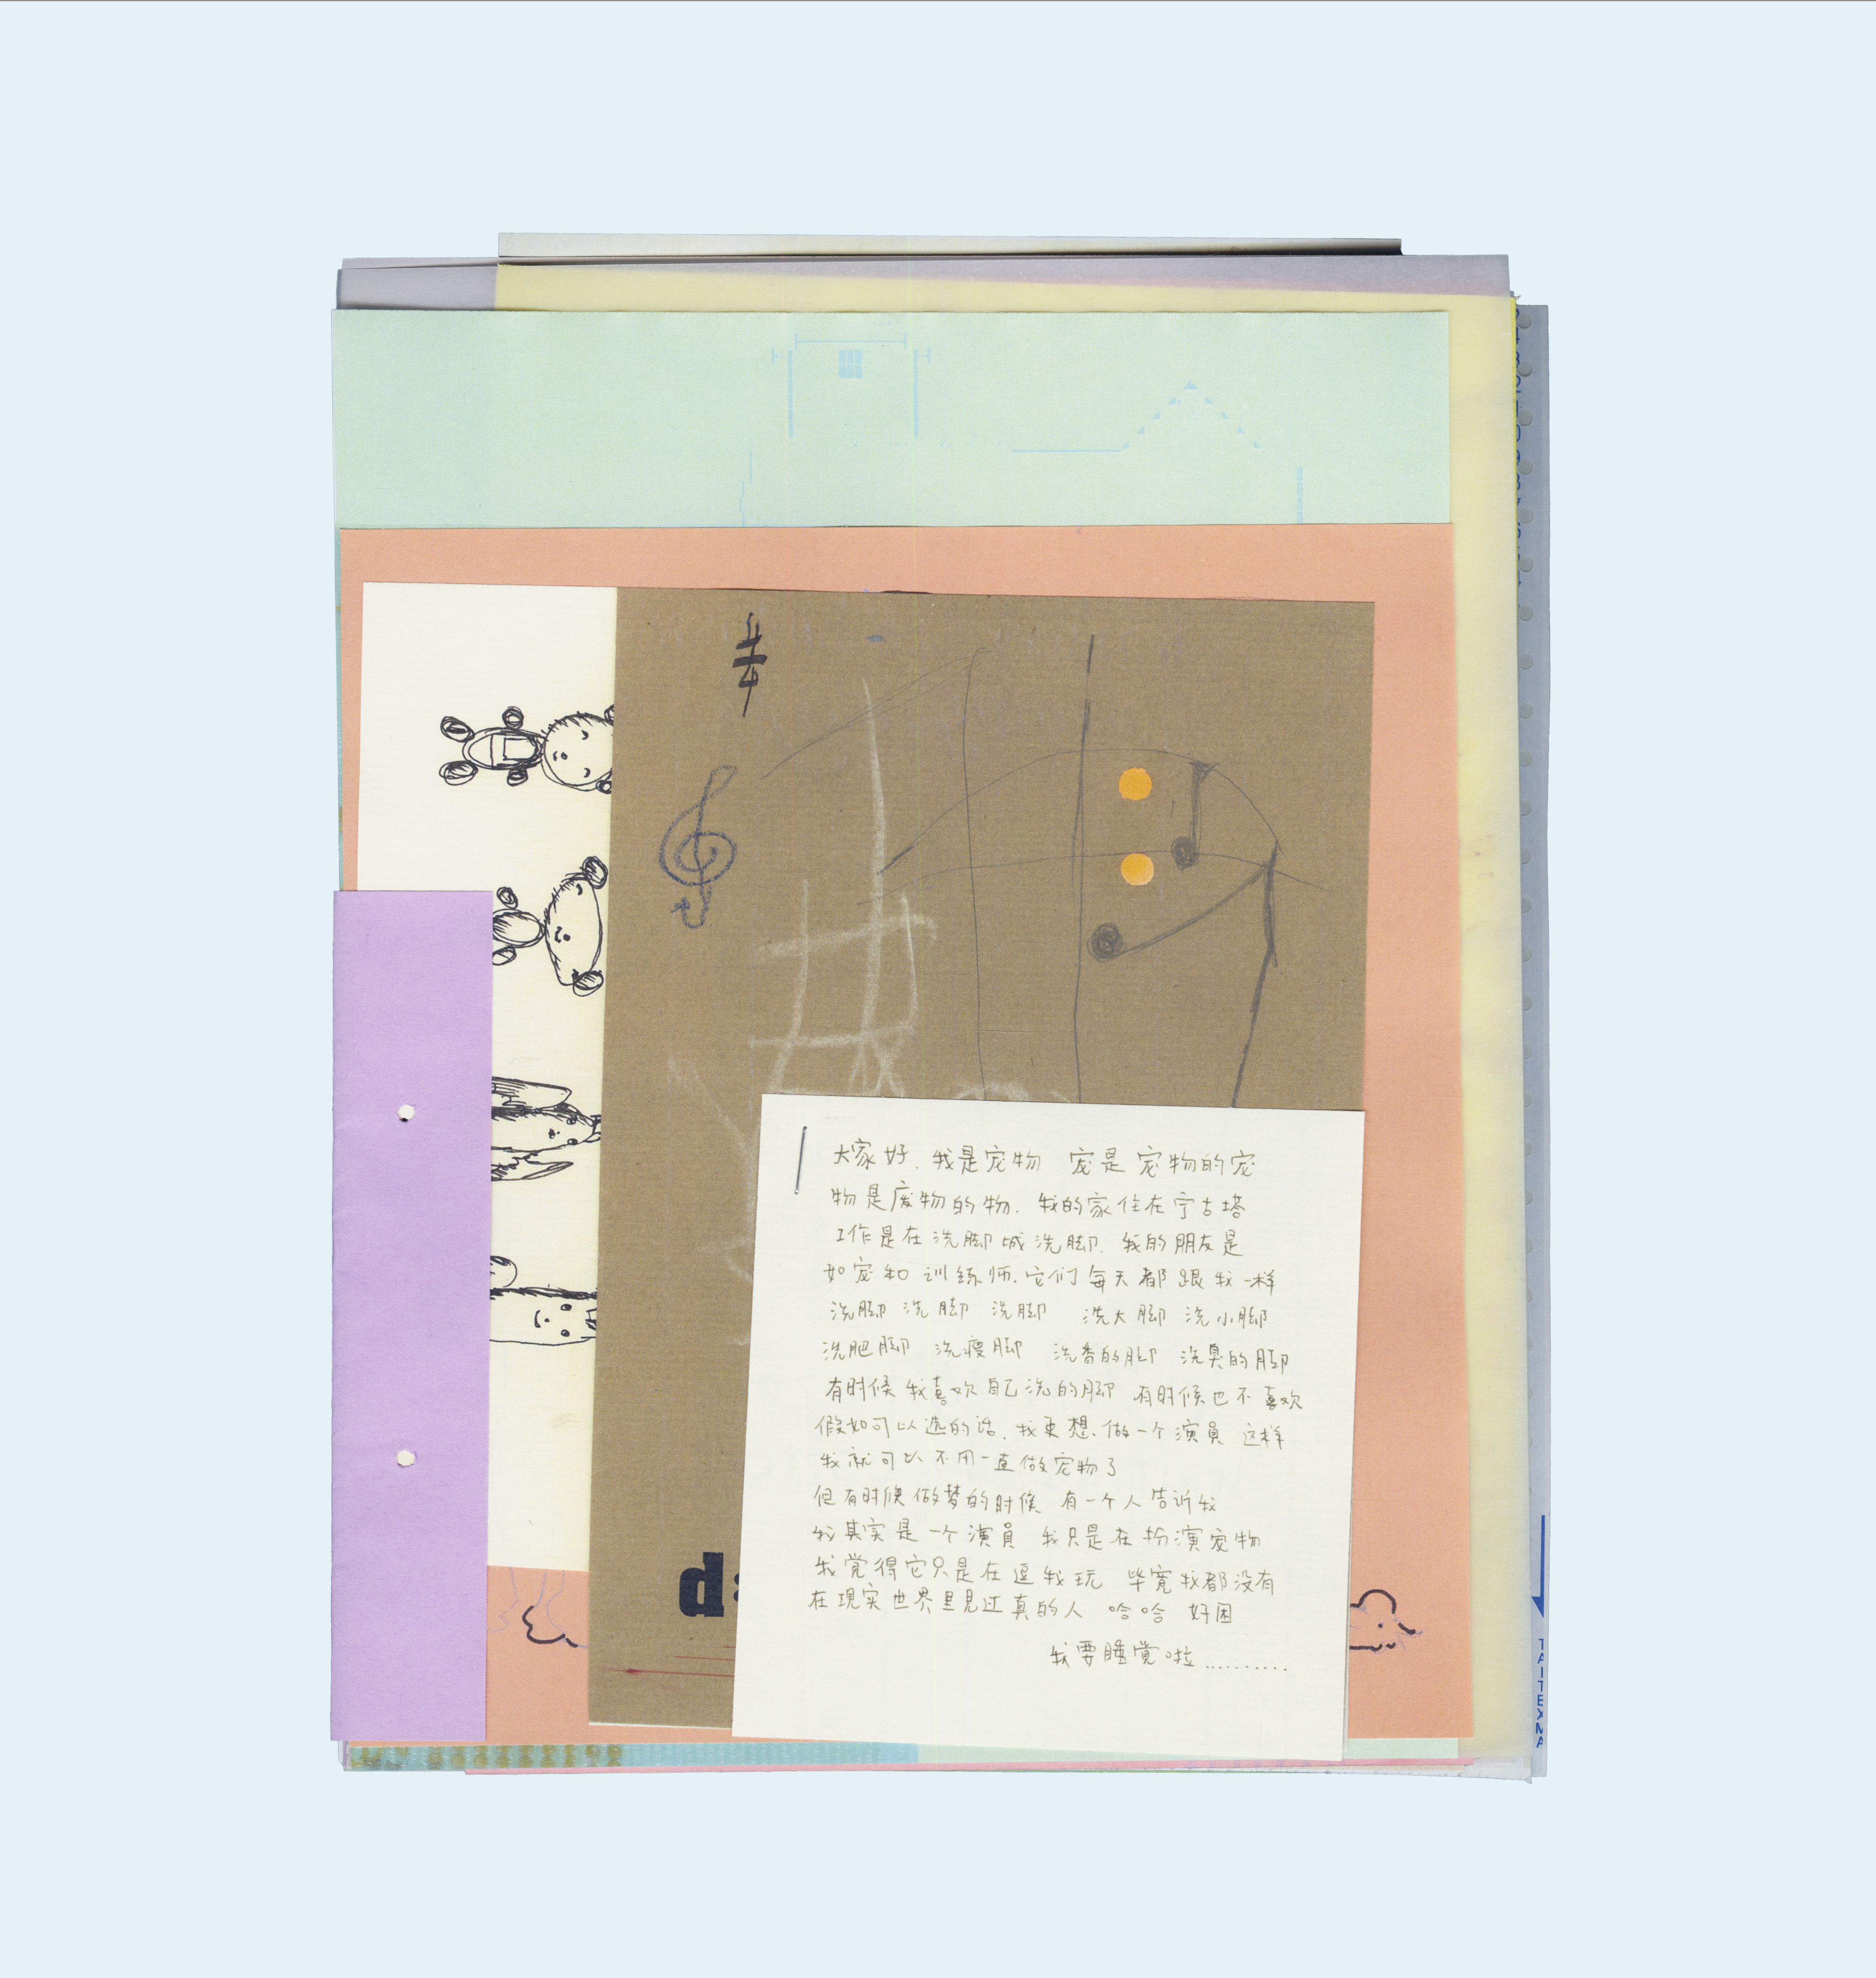 大家好.我是宠物 宠是宠物的宠
物是废物的物.我的家住在宁古塔
工作是在洗脚城洗脚.我的朋友是
如宠和训练师.它们每天都跟我一样
洗脚 洗脚 洗脚 洗大脚 洗小脚
洗肥脚 洗瘦脚 洗香的脚 洗臭的脚
有时候我喜欢自己洗的脚 有时候也不喜欢
假如可以选的话.我更想做一个演員 这样
我就可以不用一直做宠物了
但有时候做梦的时候 有一个人告诉我
我其实是一个演員 我只是在扮演宠物
我觉得它只是在逗我玩 毕竟我都没有
在現实世界里見过真的人 哈哈 好困
我要睡觉啦..........
d
TAITEXMA